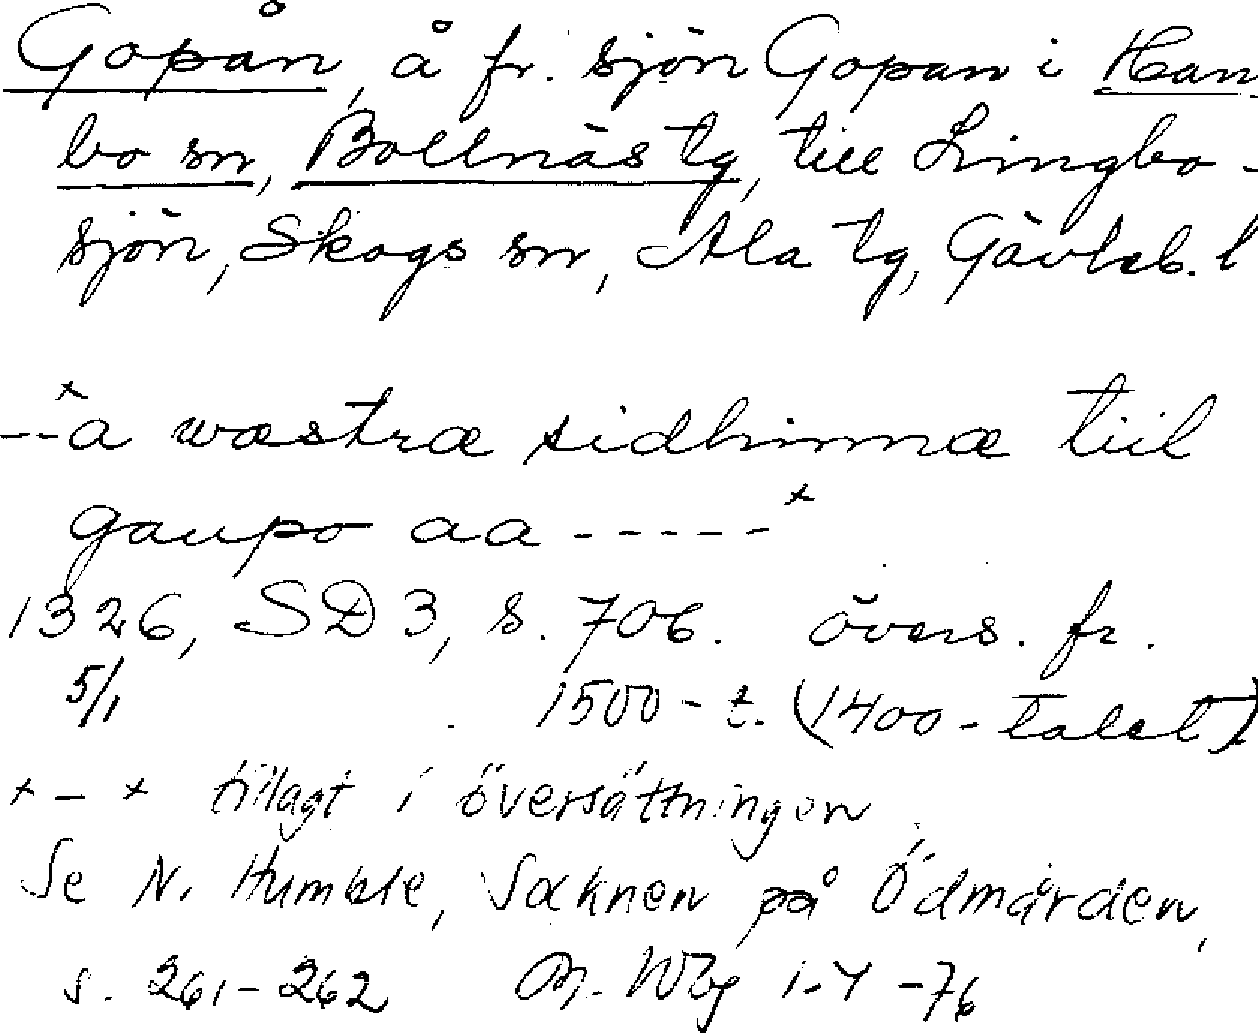 Gopån, å fr. sjön Gopan i Han-
bo sn, Bollnäs tg, till Lingbo-
sjön, Skogs sn, Ala tg, Gävleb. l
--ˣa wæstræ sidhinnæ tiil
gaupo aa -----ˣ
1326, SD 3, s. 706. övers. fr.
5/1 1500-t. (1400-talet)
x - x tillagt i översättningen.
Se N. Humble, Sæknen på Ödmården,
s. 261-262 1.4 -76